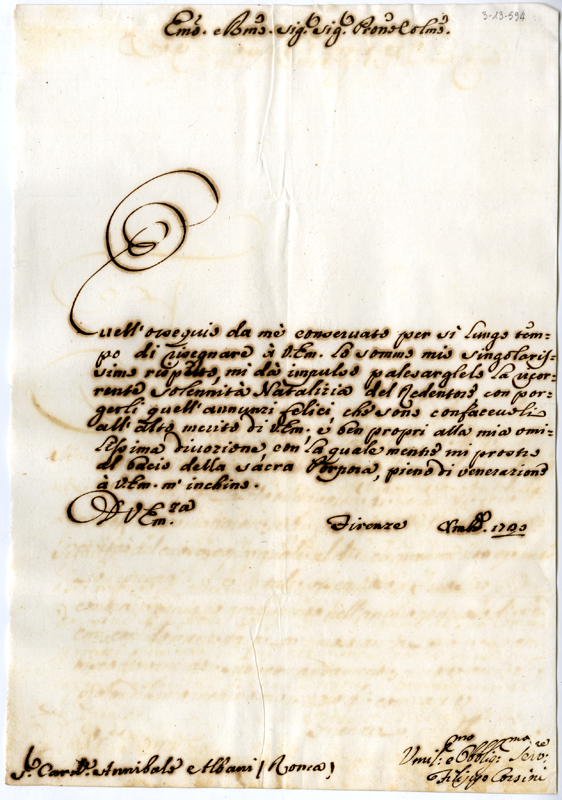 3-13-594
Em.o e Rm.o Sig.r Sig.r Prone Colmo.
Quell'ossequio da mè conservato per sì lungo tem=
po di rassegnare à V.Em. lo sommo mio singolaris=
simo rispetto, mi dà impulso palesarglelo la ricor=
rente solennità Natalizia del Redentore, con por=
gerli quell'annunzi felici, che sono confacevoli
all'alto merito di V.Em., e ben propri alla mia omi=
lissima divozione, con la quale mentre mi prostro
al bacio della sacra Porpora, pieno di venerazione
à V.Em. m'inchino.
D V Em.za
Firenze
Sr. Card.le Annibale Albani (Roma)
Umil.mo e Obblig.mo Serv.re
Filippo Corsini